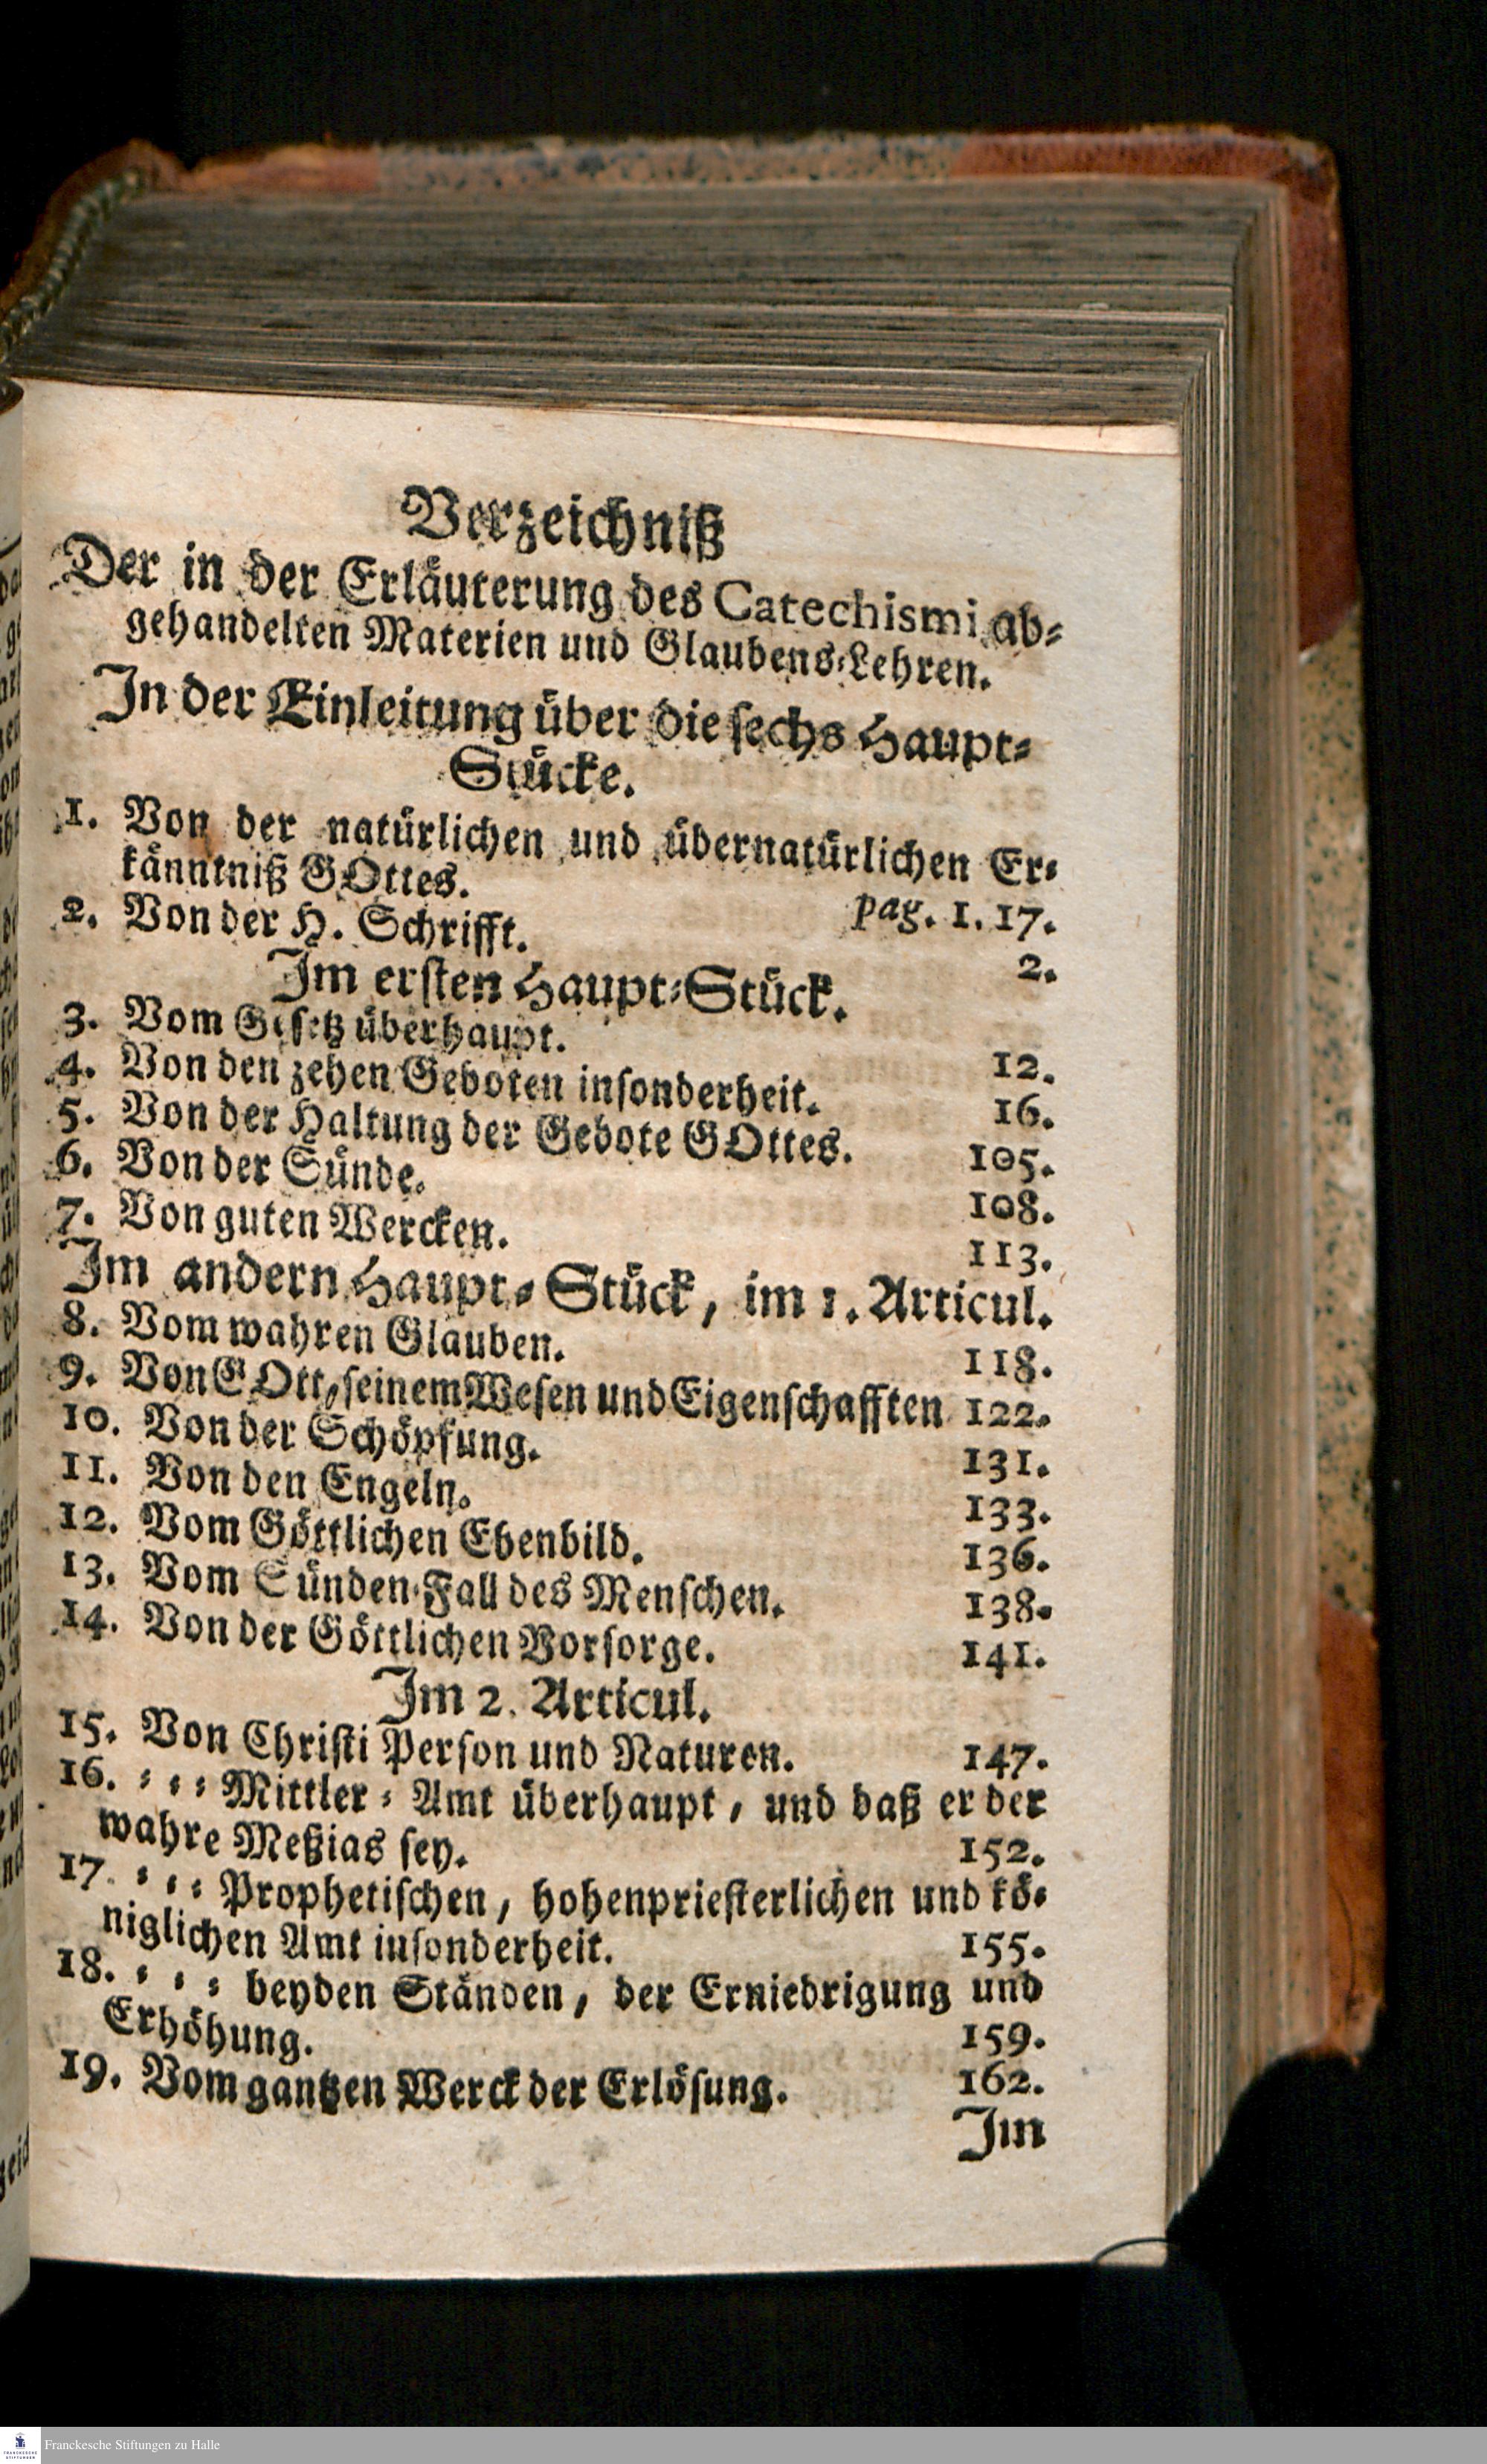 Verzeichniß
Der in der Erläuterung des Catechismi ab-
gehandelten Materien und Glaubens-Lehren.
In der Einleitung über die sechs Haupt-
Stücke.
1. Von der natürlichen und übernatürlichen Er-
känntniß GOttes. pag. 1. 17.
2. Von der H. Schrifft. 2.
Im ersten Haupt-Stück.
3. Vom Gesetz überhaupt. 12.
4. Von den zehen Geboten insonderheit. 16.
5. Von der Haltung der Gebote GOttes. 105.
6. Von der Sünde. 108.
7. Von guten Wercken. 113.
Im andern Haupt-Stück, im 1. Articul.
8. Vom wahren Glauben. 118.
9. Von GOtt, seinem Wesen und Eigenschafften 122.
10. Von der Schöpfung. 131.
11. Von den Engeln. 133.
12. Vom Göttlichen Ebenbild. 136.
13. Vom Sünden-Fall des Menschen. 138.
14. Von der Göttlichen Vorsorge. 141.
Im 2. Articul.
15. Von Christi Person und Naturen. 147.
16. - - - Mittler-Amt überhaupt, und daß er der
wahre Meßias sey. 152.
17. - - - Prophetischen, hohenpriesterlichen und kö-
niglichen Amt insonderheit. 155.
18. - - - beyden Ständen, der Erniedrigung und
Erhöhung. 159.
19. Vom gantzen Werck der Erlösung. 162.
Im
Franckesche Stiftungen zu Halle